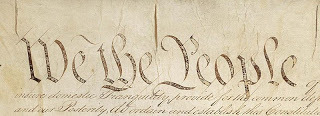 We the People
insure domestic Tranquility, provide for the common
and our Posterity, do ordain and establish this Constitution